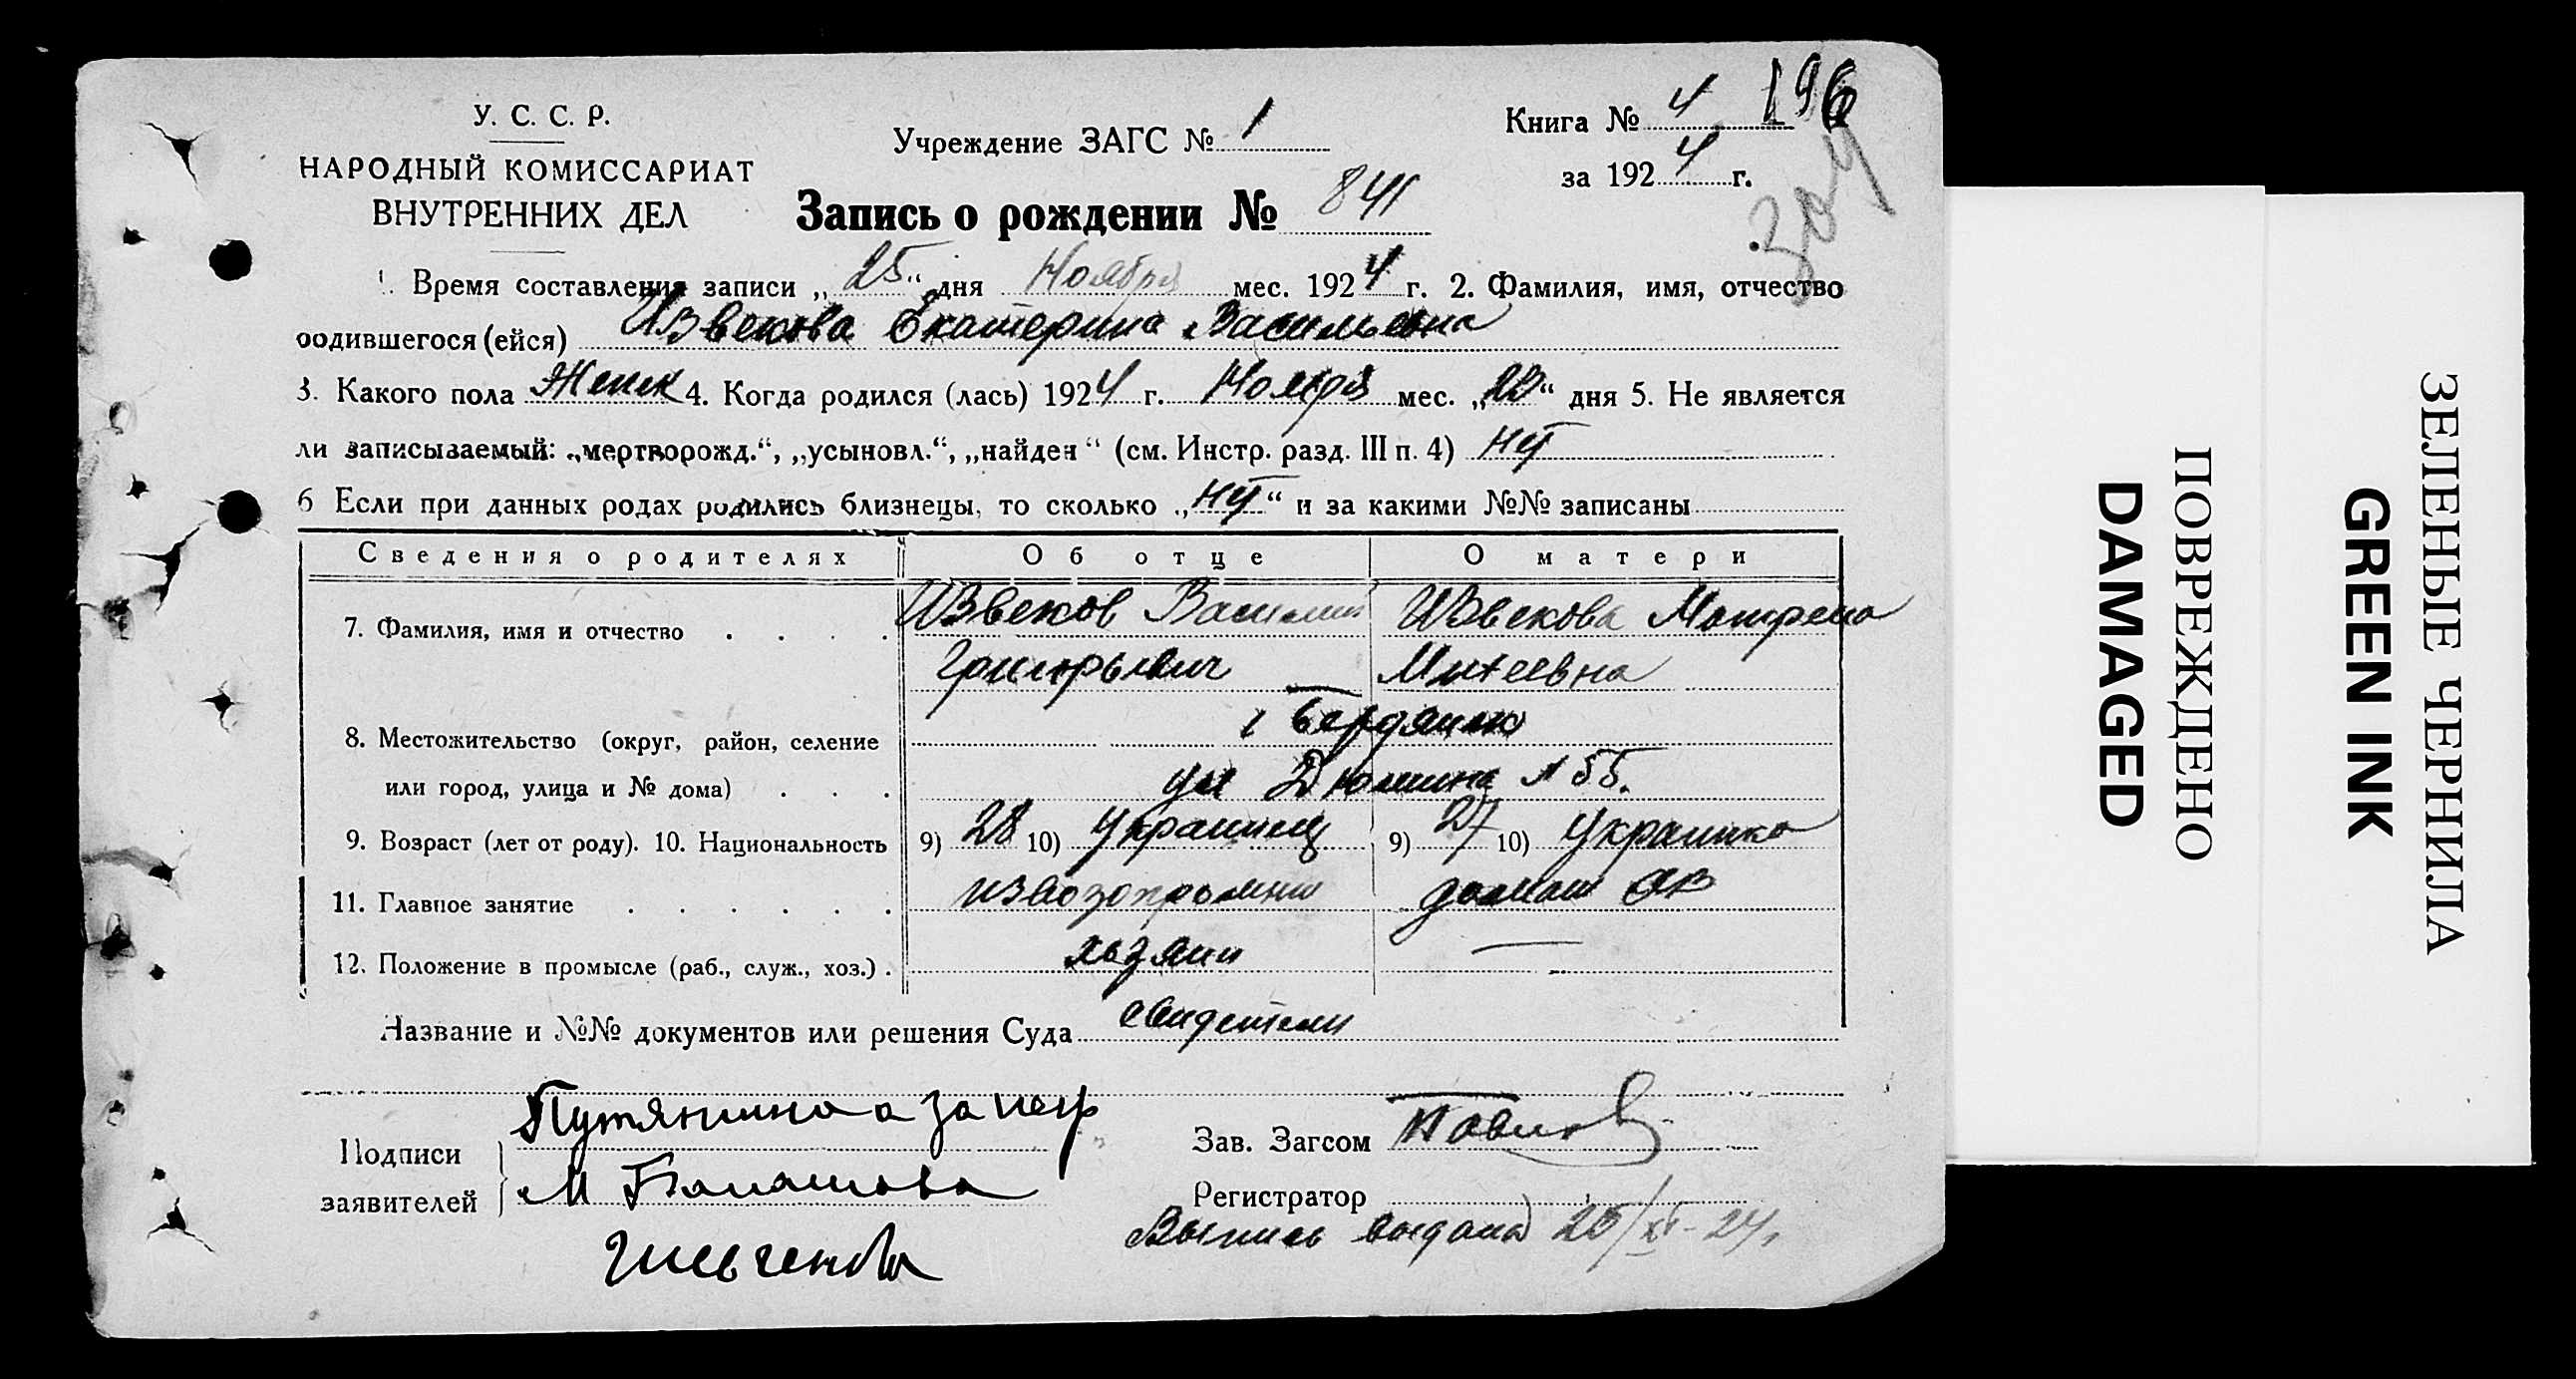 У. С. С. Р.
НАРОДНЫЙ КОМИССАРИАТ
ВНУТРЕННИХ ДЕЛ
Учреждение ЗАГС № 1
Книга № 4 196
за 1924 г.
304
Запись о рождении № 841
1. Время составления записи „25“ дня Ноября мес. 1924 г. 2. Фамилия, имя, отчество
родившегося (ейся) Извекова Екатерина Васильевна
3. Какого пола Женск 4. Когда родился (лась) 1924 г. Ноября мес. „20“ дня 5. Не является
ли записываемый: „мертворожд.“, „усыновл.“, „найден“ (см. Инстр. разд. III п. 4) нет
6 Если при данных родах родились близнецы, то сколько „нет“ и за какими №№ записаны
Сведения о родителях Об отце О матери
7. Фамилия, имя и отчество Извеков Василий Извекова Матрена
Григорьевич Михеевна
8. Местожительство (округ, район, селение г Бердянск
или город, улица и № дома) ул Дюмина № 55.
9. Возраст (лет от роду). 10. Национальность 9) 28 10) Украинец 9) 27 10) Украинка
11. Главное занятие извозопромыш домаш хоз
12. Положение в промысле (раб., служ., хоз.) хозяин —
Название и №№ документов или решения Суда свидетели
Подписи
заявителей
М Балашова
Зав. Загсом
Регистратор
Выпись выдана 25/XI-24.
ПОВРЕЖДЕНО
DAMAGED
ЗЕЛЕНЫЕ ЧЕРНИЛА
GREEN INK